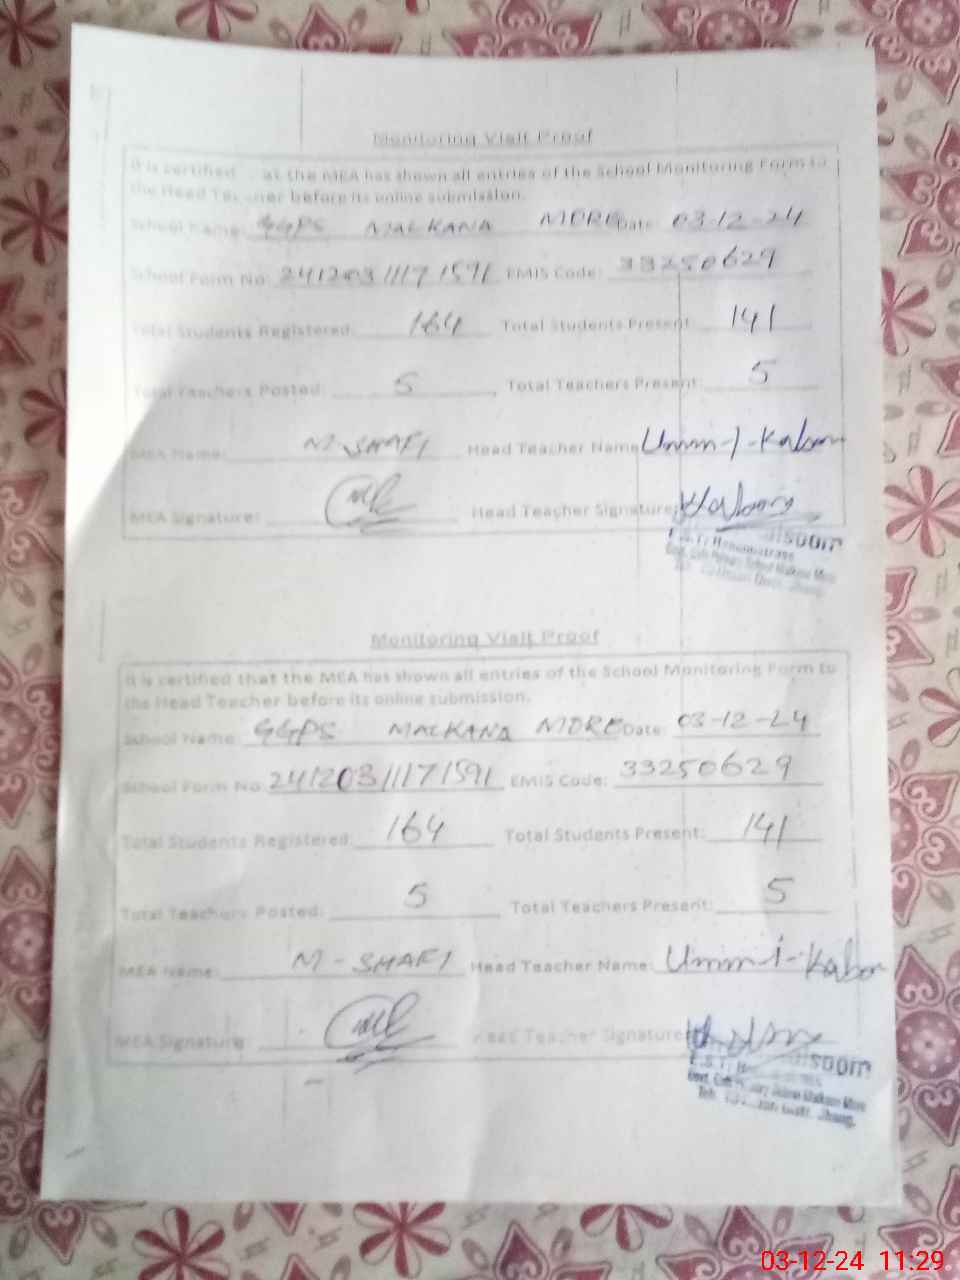 Monitoring Visit Proof
It is certified at the MEA has shown all entries of the School Monitoring Form to
the Head Teacher before its online submission.
School Name: GGPS MALKANA MORE Date: 03-12-24
School Form No: 241203111171591 EMIS Code: 33250629
Total Students Registered: 164 Total Students Present: 141
Total Teachers Posted: 5 Total Teachers Present: 5
MEA Name: M-SHAFI Head Teacher Name: Umm-I-Kalsom
MEA Signature: Head Teacher Signature:
Monitoring Visit Proof
It is certified that the MEA has shown all entries of the School Monitoring Form to
the Head Teacher before its online submission.
School Name: GGPS MALKANA MORE Date: 03-12-24
School Form No: 241203111171591 EMIS Code: 33250629
Total Students Registered: 164 Total Students Present: 141
Total Teachers Posted: 5 Total Teachers Present: 5
MEA Name: M-SHAFI Head Teacher Name: Umm-i-
MEA Signature: Head Teacher Signature:
03-12-24 11:29